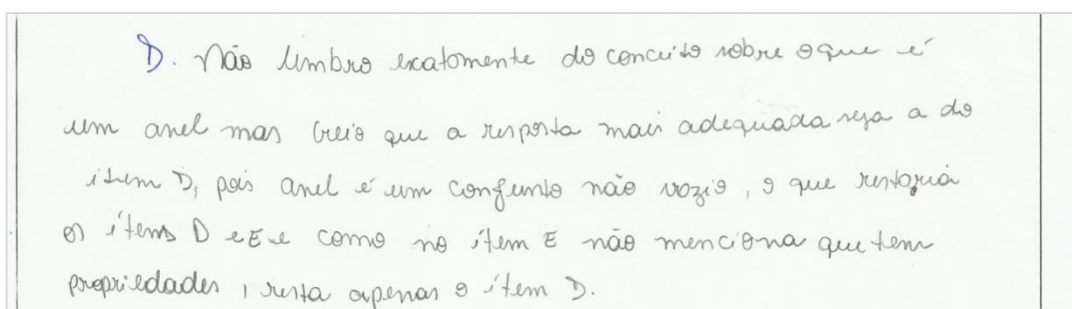 D. Não lembro exatamente do conceito sobre o que é
um anel mas creio que a resposta mais adequada seja a do
item D, pois anel é um conjunto não vazio, o que restaria
os ítens D e E e como no ítem E não menciona que tem
propriedades, resta apenas o ítem D.